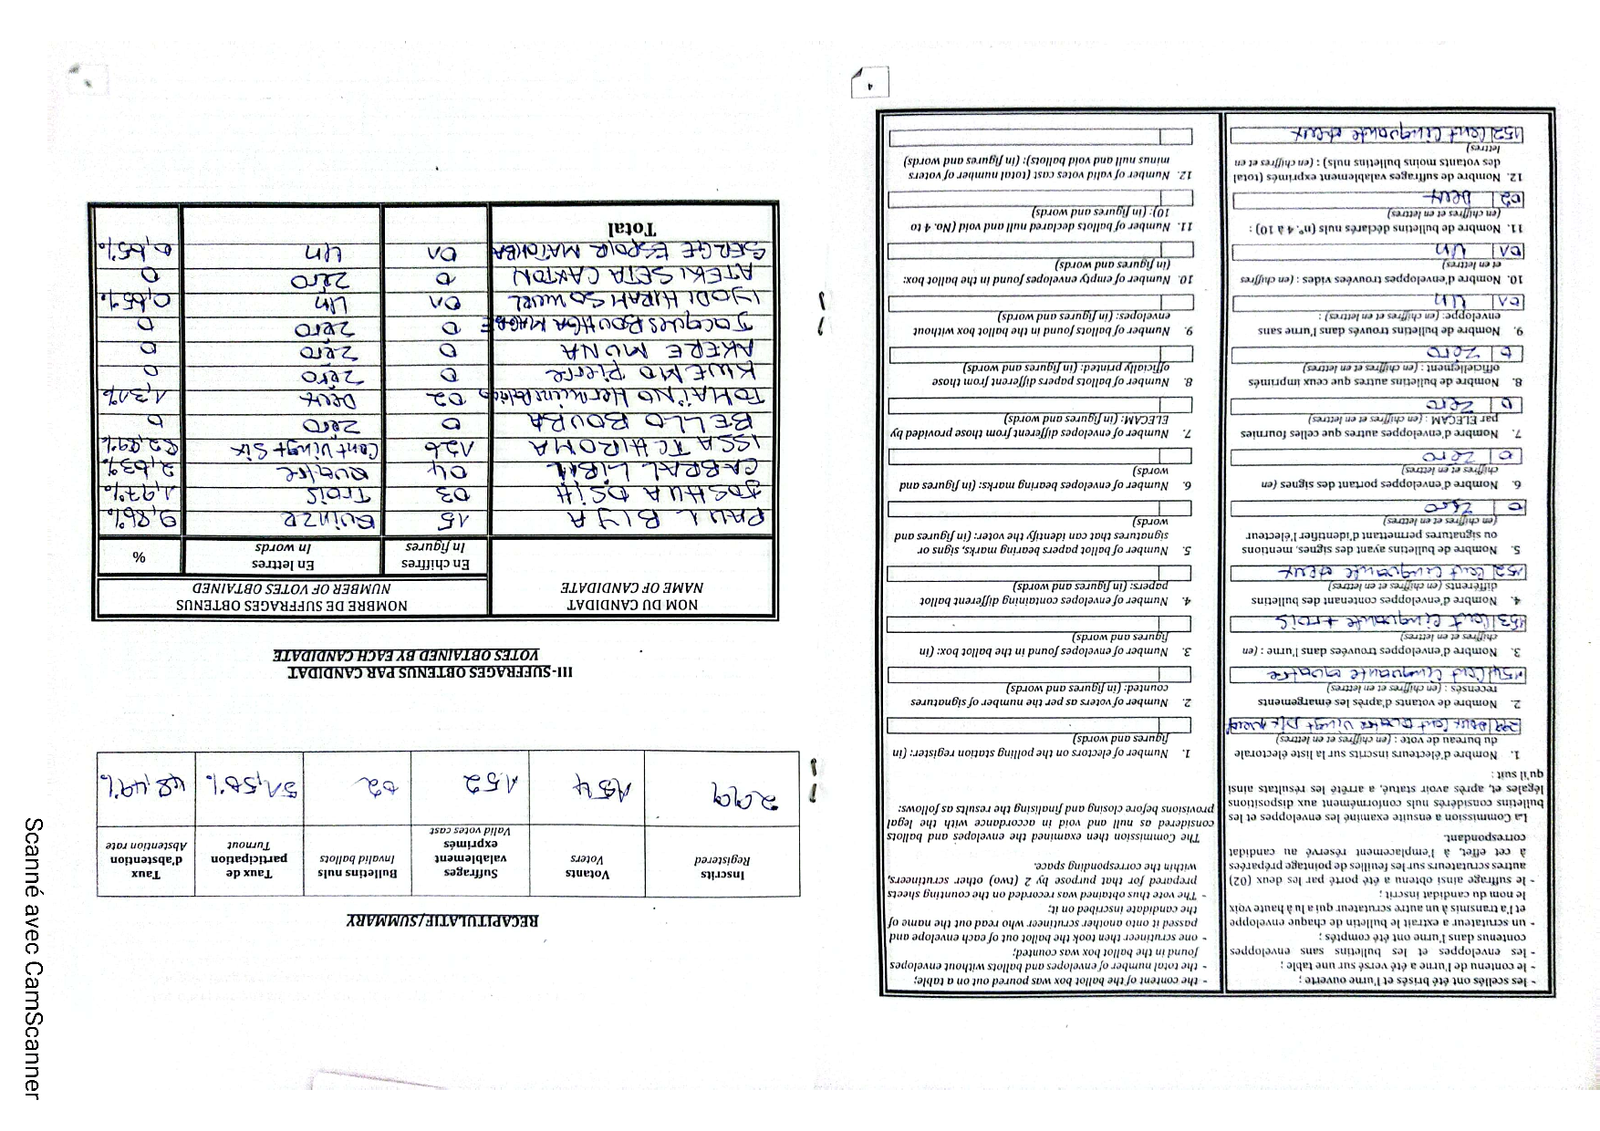 - les scellés ont été brisés et l'urne ouverte ;
- le contenu de l'urne a été versé sur une table ;
- les enveloppes et les bulletins sans enveloppes contenus dans l'urne ont été comptés ;
- un scrutateur a extrait le bulletin de chaque enveloppe et l'a transmis à un autre scrutateur qui l'a lu à haute voix le nom du candidat inscrit ;
- le suffrage ainsi obtenu a été porté par les deux (02) autres scrutateurs sur les feuilles de pointage préparées à cet effet, à l'emplacement réservé au candidat correspondant.
La Commission a ensuite examiné les enveloppes et les bulletins considérés nuls conformément aux dispositions légales et, après avoir statué, a arrêté les résultats ainsi qu'il suit :
1. Nombre d'électeurs inscrits sur la liste électorale du bureau de vote : (en chiffres et en lettres)
299 Deux Cent quatre vingt Dix neuf
2. Nombre de votants d'après les émargements recensés : (en chiffres et en lettres)
154 Cent Cinquante quatre
3. Nombre d'enveloppes trouvées dans l'urne : (en chiffres et en lettres)
153 Cent Cinquante trois
4. Nombre d'enveloppes contenant des bulletins différents (en chiffres et en lettres)
152 Cent Cinquante deux
5. Nombre de bulletins ayant des signes, mentions ou signatures permettant d'identifier l'électeur (en chiffres et en lettres)
0 Zéro
6. Nombre d'enveloppes portant des signes (en chiffres et en lettres)
0 Zéro
7. Nombre d'enveloppes autres que celles fournies par ELECAM : (en chiffres et en lettres)
0 Zéro
8. Nombre de bulletins autres que ceux imprimés officiellement : (en chiffres et en lettres)
0 Zéro
9. Nombre de bulletins trouvés dans l'urne sans enveloppe: (en chiffres et en lettres) :
01 Un
10. Nombre d'enveloppes trouvées vides : (en chiffres et en lettres)
01 Un
11. Nombre de bulletins déclarés nuls (n°. 4 à 10) : (en chiffres et en lettres)
02 Deux
12. Nombre de suffrages valablement exprimés (total des votants moins bulletins nuls) : (en chiffres et en lettres)
152 Cent Cinquante deux
- the content of the ballot box was poured out on a table;
- the total number of envelopes and ballots without envelopes found in the ballot box was counted;
- one scrutineer then took the ballot out of each envelope and passed it onto another scrutineer who read out the name of the candidate inscribed on it;
- The vote thus obtained was recorded on the counting sheets prepared for that purpose by 2 (two) other scrutineers, within the corresponding space.
The Commission then examined the envelopes and ballots considered as null and void in accordance with the legal provisions before closing and finalising the results as follows:
1. Number of electors on the polling station register: (in figures and words)
2. Number of voters as per the number of signatures counted: (in figures and words)
3. Number of envelopes found in the ballot box: (in figures and words)
4. Number of envelopes containing different ballot papers: (in figures and words)
5. Number of ballot papers bearing marks, signs or signatures that can identify the voter: (in figures and words)
6. Number of envelopes bearing marks: (in figures and words)
7. Number of envelopes different from those provided by ELECAM: (in figures and words)
8. Number of ballot papers different from those officially printed: (in figures and words)
9. Number of ballots found in the ballot box without envelopes: (in figures and words)
10. Number of empty envelopes found in the ballot box: (in figures and words)
11. Number of ballots declared null and void (No. 4 to 10): (in figures and words)
12. Number of valid votes cast (total number of voters minus null and void ballots): (in figures and words)
4
RECAPITULATIF/SUMMARY
Inscrits Registered | Votants Voters | Suffrages valablement exprimés Valid votes cast | Bulletins nuls Invalid ballots | Taux de participation Turnout | Taux d'abstention Abstention rate
299 | 154 | 152 | 02 | 51,50% | 48,49%
III- SUFFRAGES OBTENUS PAR CANDIDAT
VOTES OBTAINED BY EACH CANDIDATE
NOM DU CANDIDAT NAME OF CANDIDATE | NOMBRE DE SUFFRAGES OBTENUS NUMBER OF VOTES OBTAINED
En chiffres In figures | En lettres In words | %
PAUL BIYA | 15 | Quinze | 9,86%
JOSHUA OSIH | 03 | Trois | 1,97%
CABRAL LIBII | 04 | Quatre | 2,63%
ISSA TCHIROMA | 126 | Cent vingt Six | 82,89%
BELLO BOUBA | 0 | zéro | 0
TOMAÏNO Hermine Patricia | 02 | Deux | 1,31%
KWEMO Pierre | 0 | zéro | 0
AKERE MUNA | 0 | zéro | 0
Jacques BOUHGA MAGBE | 0 | zéro | 0
IYODI HIRAM SAMUEL | 01 | Un | 0,65%
ATEKI SETA CAXTON | 0 | zéro | 0
SERGE ESPOIR MATOMBA | 01 | Un | 0,65%
Total
Scanné avec CamScanner